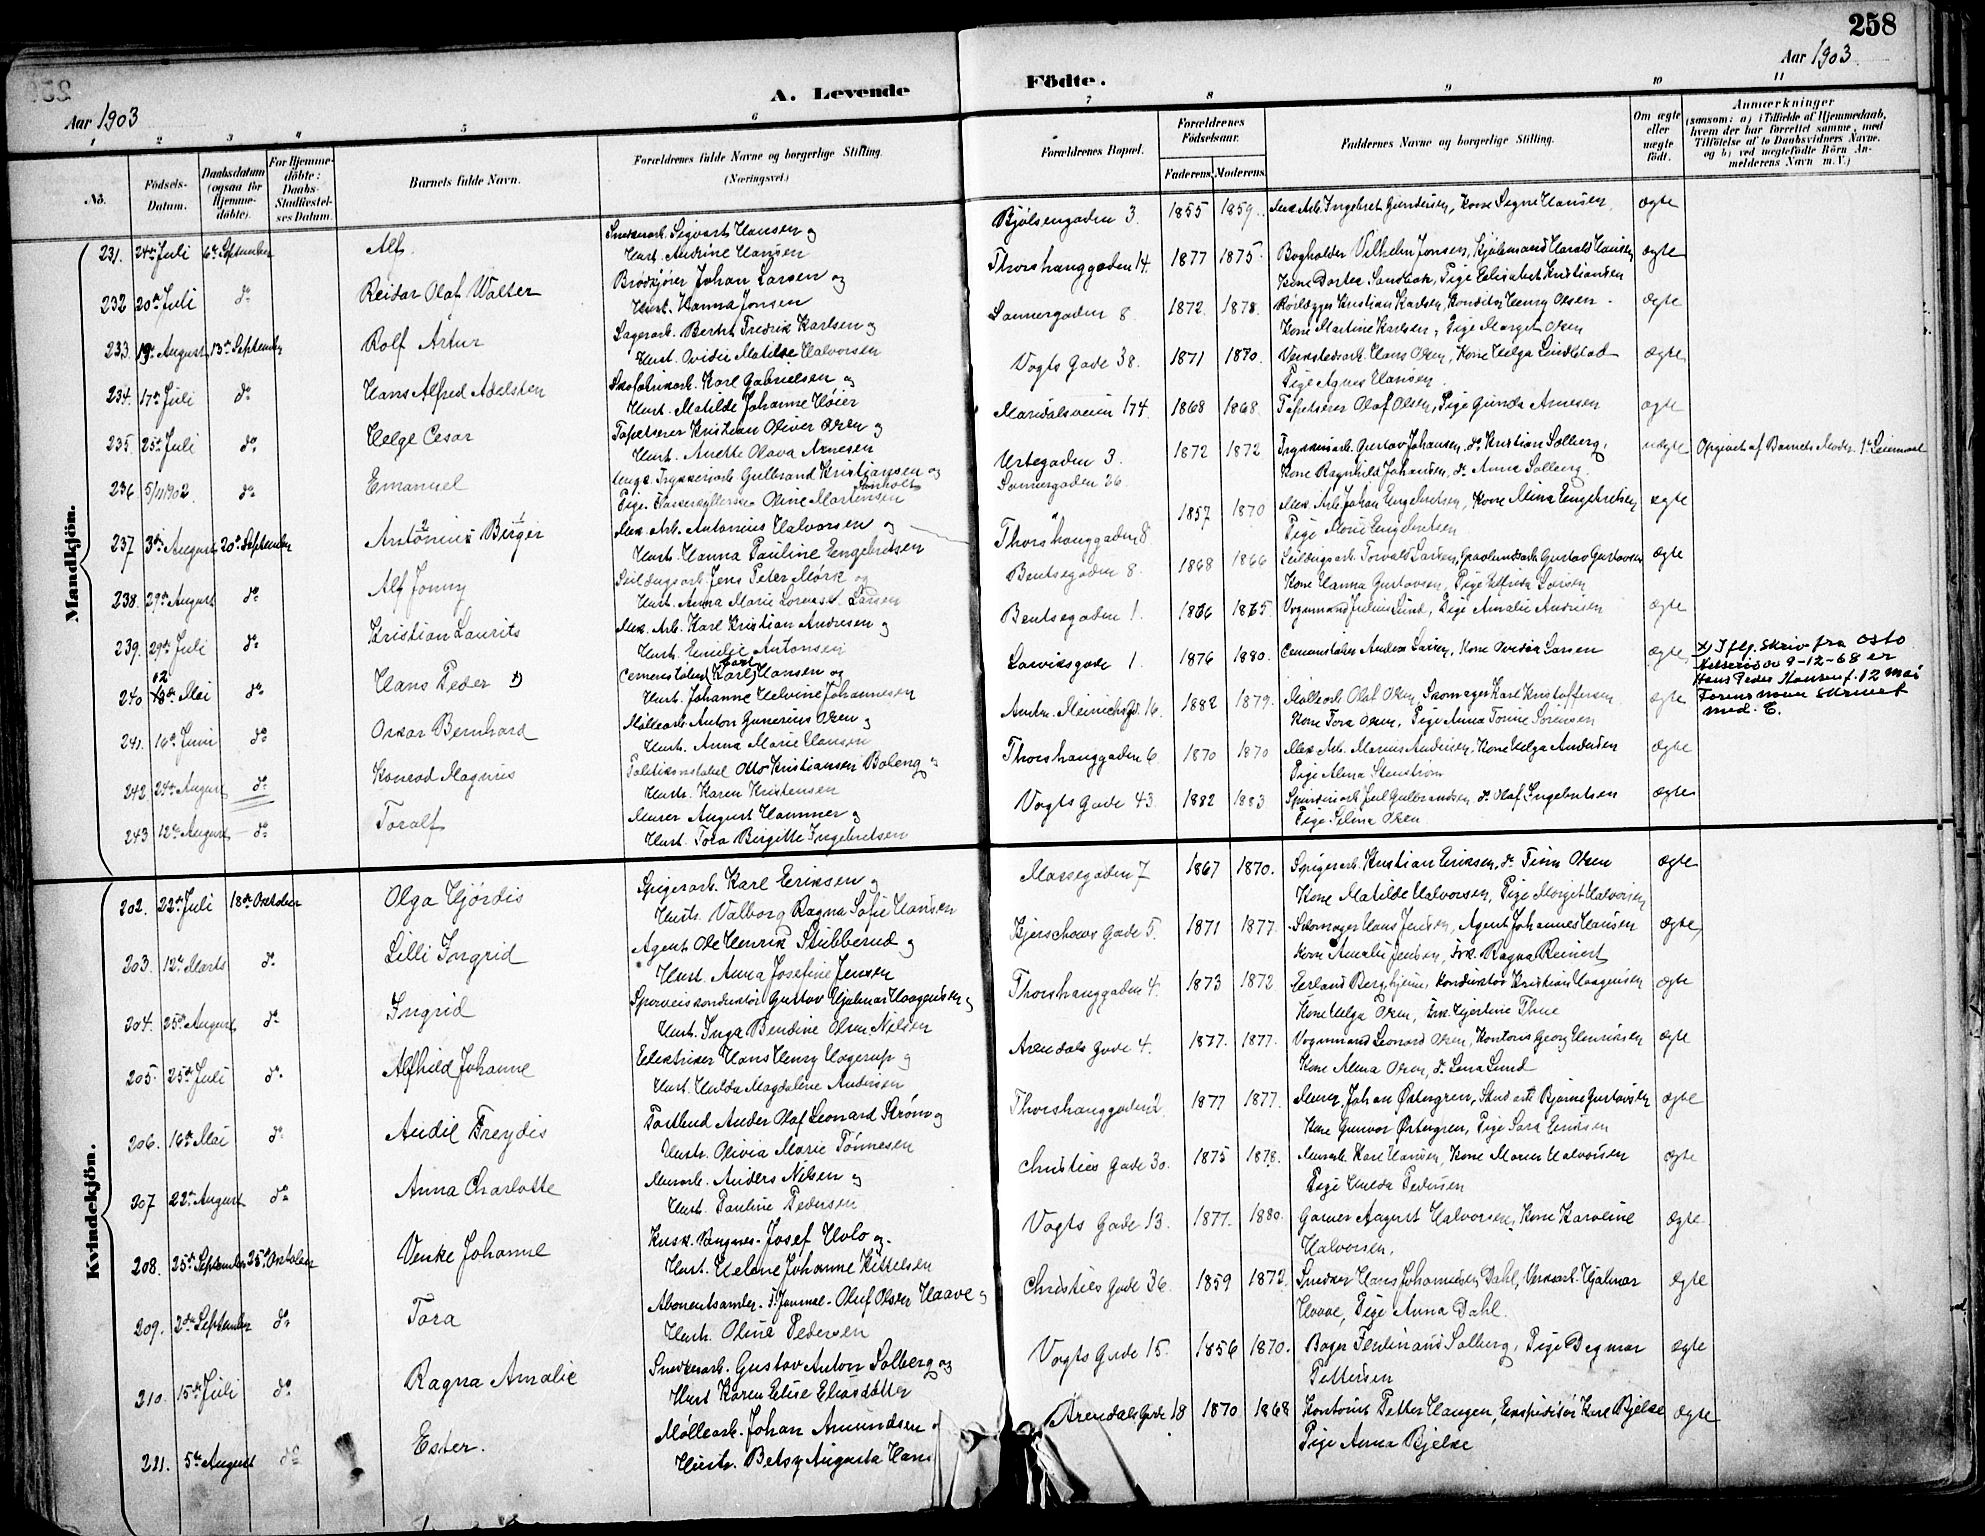 258
Aar 1903
A. Levende Födte.
Aar 1903
1 2 3 4 5 6 7 8 9 10 11
No. Födsels-Datum. Daabsdatum (ogsaa for Hjemmedöbte). For Hjemmedöbte: Daabs-Stadfæstelses Datum. Barnets fulde Navn. Forældrenes fulde Navne og borgerlige Stilling. (Næringsvei.) Forældrenes Bopæl. Forældrenes Födselsaar. Faderens. Moderens. Faddernes Navne og borgerlige Stilling. Om ægte eller uægte födt. Anmærkninger (saasom: a) i Tilfælde af Hjemmedaab, hvem der har forrettet samme, med Tilföielse af to Daabsvidners Navne. og b) ved uægtefödte Börn Anmelderens Navn m. V.)
Mandkjön.
231. 24de Juli 6te September Alf. Snedkerarb. Sigvart Hansen og Bjølsengaden 3. 1855 1859. Mek. Arb. Ingebret Gundersen, Kone Signe Hansen. ægte
Hust. Andrine Hansen
232 20de Juli do Reidar Olaf Walter Brødkjører Johan Larsen og Thorshauggaden 14. 1877 1875. Bogholder Vilhelm Jonsen, Kjøbmand Harald Hansen ægte
Hust. Hanna Jonsen Kone Dorter Sandbak, Pige Elisabet Kristiansen
233. 19de August 13de September Rolf Artur Lagerarb. Bernt Fredrik Karlsen og Sannergaden 8. 1872. 1878. Rørlægger Kristian Karlsen, Konditor Henry Olsen ægte
Hust. Ovidie Matilde Halvorsen Kone Martine Karlsen, Pige Marget Olsen
234. 17de Juli do Hans Alfred Adelsten Skofabrikarb. Karl Gabrielsen og Vogts Gade 38. 1871 1870. Verkstedsarb. Hans Olsen, Kone Helga Lindblad ægte
Hust. Matilde Johanne Høier Pige Agnes Hansen.
235. 25de Juli do Helge Cesar Tapetserer Kristian Oliver Olsen og Maridalsveien 174. 1868 1868. Tapetserer Olaf Olsen, Pige Gunda Arnesen ægte
Hust. Anette Olava Arnesen
236. 5/11 1902 do Emanuel Ungk. Trykkeriarb Gulbrand Kristiansen og Urtegaden 3. 1872 1872 Trykkeriarb. Gustav Johansen, do Kristian Solberg, uægte Opgivet af Barnets Moder. 1ste Leiermaal
Pige Oline Martensen Sannergaden 26 Kone Ragnhild Johansen, do Anna Solberg.
237 3die August 20de September Antonius Birger Mek. Arb. Antonius Halvorsen og Thorshauggaden 8. 1857 1870 Mek. Arb. Johan Engebretsen, Kone Mina Engebretsen ægte
Hust. Hanna Pauline Engebretsen Pige Marie Engebretsen
238. 29de August do Alf Jonny Seildugsarb. Jens Peter Mørk og Bentsegaden 8. 1868 1866 Seildugsarb. Torvald Larsen, Gustav Gustavsen ægte
Hust. Anna Marie Larsen Kone Hanna Gustavsen, Pige Alfrida Larsen
239. 29de Juli do Kristian Laurits Mek. Arb. Karl Kristian Andresen og Bentsegaden 1. 1866 1865 Vognmand Julius Lund, Pige Amalie Andresen ægte
Hust. Emilie Antonsen
240 12 Mai do Hans Peder x) Cementstøber (Karl) Hansen og Larviksgade 1 1876 1880. Cementstøber Anders Larsen, Kone Ovidia Larsen ægte x) Iflg. skriv fra Oslo
Hust. Johanne Helvine Johannesen 9-12-68 er
Hans Peder Hansen f. 12 mai
241. 16de Juni do Oskar Bernhard Møllearb. Anton Gunerius Olsen og Andr. Meinichsgd. 16. 1882 1879. Møllearb. Olaf Olsen, Skomager Karl Kristoffersen ægte Fornavnene skrevet
Hust. Anna Marie Hansen Kone Tora Olsen, Pige Anna Tomine Sørensen med. C.
242 24de August do Konrad Magnus Politikonstabel Otto Kristiansen Boleng og Thorshauggaden 6. 1870 1870 Mek. Arb. Marius Andersen, Kone Helga Andersen ægte
Hustr. Karen Kristensen Pige Alma Stenstrøm
243 12te August do Toralf Murer August Hammer og Vogts Gade 43. 1882 1883 Spinderiarb. Juel Gulbrandsen, do Olaf Ingebretsen ægte
Hust. Tora Birgitte Ingebretsen Pige Selma Olsen
Kvindekjön.
202. 22de Juli 18de October Olga Hjørdis Spigerarb. Karl Eriksen og Mossegaden 7 1867 1870. Spigerarb. Kristian Eriksen, do Timm Olsen ægte
Hust. Valborg Ragna Sofie Hansen Kone Matilde Halvorsen, Pige Marget Halvorsen
203. 12te Marts do Lilli Ingrid Agent Ole Henrik Stubberud og Kjerschows Gade 5. 1871 1877. Skomager Hans Jensen, Agent Johannes Hansen ægte
Hust. Anna Josefine Jensen Kone Amalie Jensen, Frk. Ragna Reinert
204. 25de August do Ingrid Sporveiskonduktør Gustav Hjalmar Haagensen og Thorshauggaden 4. 1873 1872 Erland Berghjem, Konduktør Kristian Haagensen ægte
Hust. Inga Bendine Olsen Nilsen Kone Helga Olsen, Frk. Hjertine Thue
205. 25de Juli do Alfhild Johanne Elektriker Hans Henry Hagerup og Arendals Gade 4. 1877. 1877. Vognmand Leonard Olsen, Kontorist Georg Henriksen ægte
Hust. Hulda Magdalene Andersen Kone Alma Olsen, do Lena Lund
206. 16de Mai do Audil Freydis Postbud Anders Olaf Leonard Strøm og Thorshauggaden 2. 1877 1877. Murer Johan Østergren, Bjarne Gustavsen ægte
Hustr. Olivia Marie Tønnesen Kone Gunvor Østergren, Pige Sara Eriksen
207 22de August do Anna Charlotte Murarb. Anders Nilsen og Christies Gade 30. 1875 1878. Murarb. Karl Hansen, Kone Maren Halvorsen ægte
Hust. Pauline Pedersen Pige Hulda Pedersen
208. 25de September 25de October Venke Johanne Kusk Josef Holo og Vogts Gade 13. 1877. 1880. Garver August Halvorsen, Kone Karoline ægte
Hust. Helene Johanne Kittelsen Halvorsen.
209. 2den September do Tora Abonentsamler Olaf Olsen Haave og Christies Gade 36. 1859 1872. Snedker Hans Johannesen Dahl, Verksarb. Hjalmar ægte
Hustr. Oline Pedersen Haave, Pige Anna Dahl.
210. 15de Juli do Ragna Amalie Snedkerarb. Gustav Anton Solberg og Vogts Gade 15. 1856 1870. Bager Ferdinand Solberg, Pige Dagmar ægte
Hust Karen Elise Eliasdatter Pettersen
211. 5te August do Ester. Møllearb. Johan Amundsen og Arendals Gade 18 1870 1868 Kontorist Petter Haugen, Ekspeditør Karl Bjelke ægte
Hustr. Betsy Augusta Hans Pige Anna Bjelke